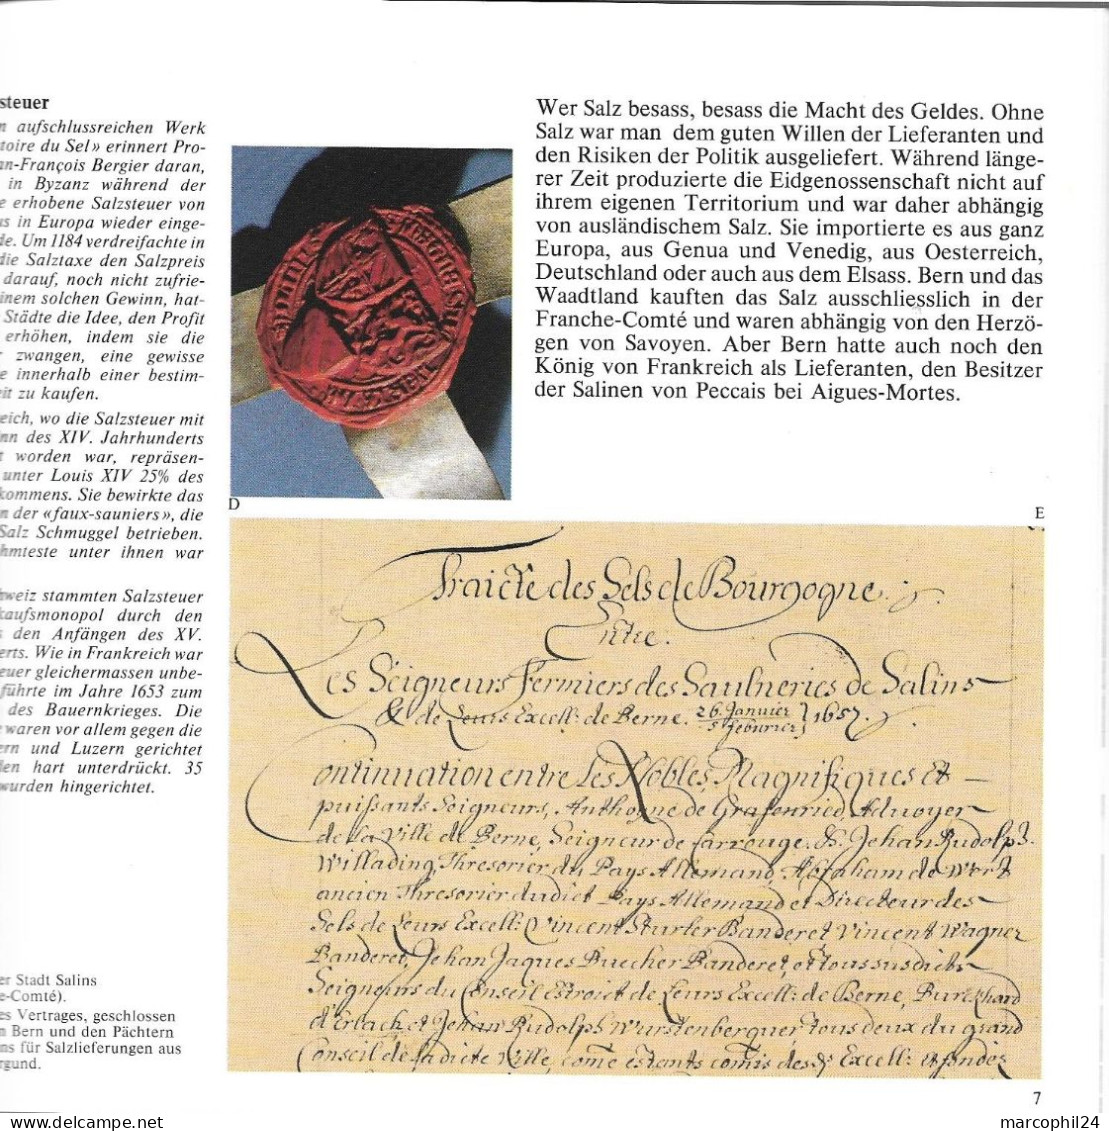 steuer
n aufschlussreichen Werk
toire du Sel» erinnert Pro-
n-François Bergier daran,
in Byzanz während der
e erhobene Salzsteuer von
s in Europa wieder einge-
de. Um 1184 verdreifachte in
die Salztaxe den Salzpreis
darauf, noch nicht zufrie-
inem solchen Gewinn, hat-
Städte die Idee, den Profit
erhöhen, indem sie die
r zwangen, eine gewisse
e innerhalb einer bestim-
eit zu kaufen.
eich, wo die Salzsteuer mit
nn des XIV. Jahrhunderts
t worden war, repräsen-
unter Louis XIV 25% des
kommens. Sie bewirkte das
n der «faux-sauniers», die
Salz Schmuggel betrieben.
hmteste unter ihnen war
weiz stammten Salzsteuer
kaufsmonopol durch den
s den Anfängen des XV.
erts. Wie in Frankreich war
euer gleichermassen unbe-
führte im Jahre 1653 zum
des Bauernkrieges. Die
waren vor allem gegen die
ern und Luzern gerichtet
den hart unterdrückt. 35
wurden hingerichtet.
er Stadt Salins
e-Comté).
es Vertrages, geschlossen
n Bern und den Pächtern
ns für Salzlieferungen aus
rgund.
Wer Salz besass, besass die Macht des Geldes. Ohne
Salz war man dem guten Willen der Lieferanten und
den Risiken der Politik ausgeliefert. Während länge-
rer Zeit produzierte die Eidgenossenschaft nicht auf
ihrem eigenen Territorium und war daher abhängig
von ausländischem Salz. Sie importierte es aus ganz
Europa, aus Genua und Venedig, aus Oesterreich,
Deutschland oder auch aus dem Elsass. Bern und das
Waadtland kauften das Salz ausschliesslich in der
Franche-Comté und waren abhängig von den Herzö-
gen von Savoyen. Aber Bern hatte auch noch den
König von Frankreich als Lieferanten, den Besitzer
der Salinen von Peccais bei Aigues-Mortes.
D
E
Traicté des Sels de Bourgogne.
Entre.
Les Seigneurs Fermiers des Saulneries de Salins
& de Leurs Excell: de Berne. 26. Janvier / 5 febvrier 1657.
Continuation entre Les Nobles, Magnifiques Et
puissants Seigneurs, Anthoyne de Grafenried, Advoyer
de la Ville de Berne, Seigneur de Carrouge. Sr. Jehan Rudolph.
Willading, Thresorier du Pays Allemand, Abraham de Wert
ancien Thresorier dudict Pays Allemand et Directeur des
Sels de Leurs Excell: Vincent Sturler Banderet Vincent Wagner
Banderet, Jehan Jaques Buecher Banderet, et tous susdicts
Seigneurs du Conseil Estroict de Leurs Excell: de Berne, Burckhard
d'Erlach et Jehan Rudolph Wurstenberguer tous deux du grand
Conseil de ladicte Ville, come estants comis des Excell: et fondez
7
marcophil24